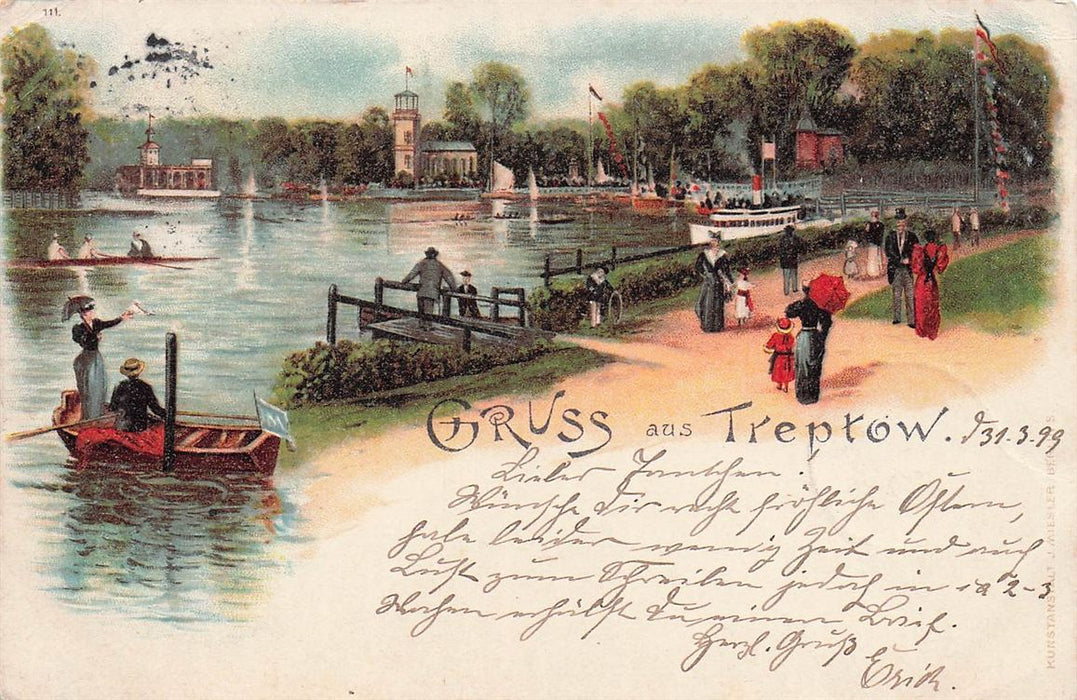 111.
Gruss aus Treptow. d 31.3.99
Lieber
Wünsche Dir recht fröhliche Ostern,
habe leider wenig Zeit und auch
Lust zum Schreiben jedoch in ca 2-3
Wochen erhälst Du einen Brief.
Herzl. Gruß
Erich.
KUNSTANSTALT J. MIESLER BERLIN S.